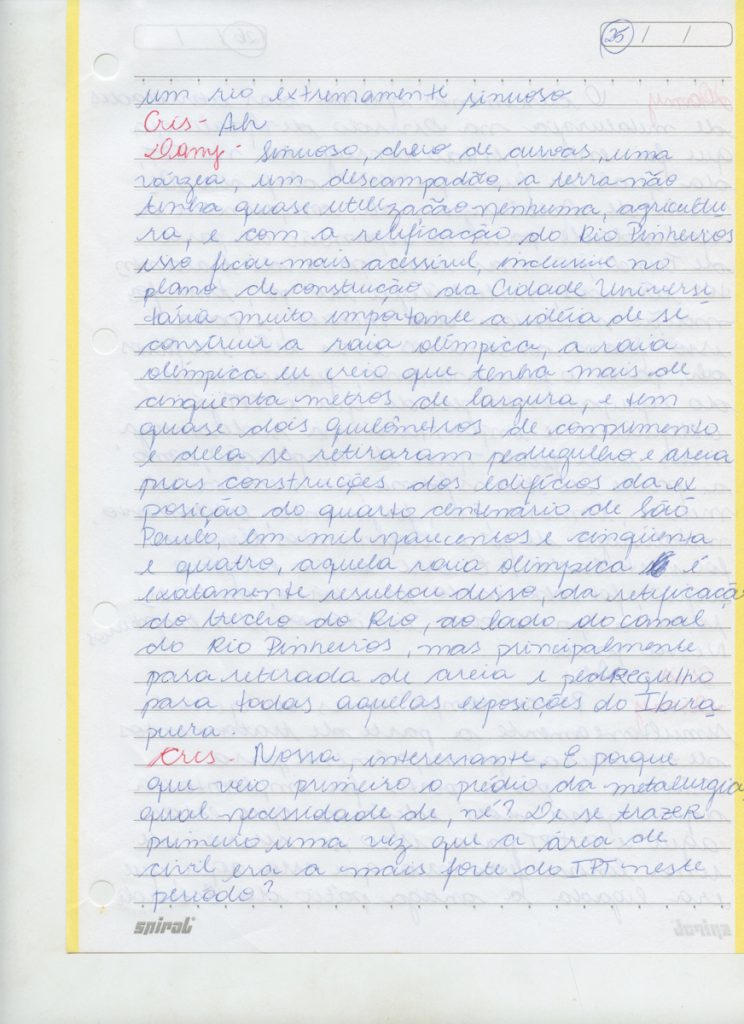 25 / /
um rio extremamente sinuoso
Cris - Ah
Damy - Sinuoso, cheio de curvas, uma
várzea, um descampadão, a terra não
tinha quase utilização nenhuma, agricultu
ra, e com a retificação do Rio Pinheiros
isso ficou mais acessível, inclusive no
plano de construção da Cidade Universi
tária muito importante a idéia de se
construir a raia olímpica, a raia
olímpica eu creio que tenha mais de
cinqüenta metros de largura, e tem
quase dois quilômetros de comprimento
e dela se retiraram pedregulho e areia
pras construções dos edifícios da ex
posição do quarto centenário de São
Paulo, em mil novecentos e cinqüenta
e quatro, aquela raia olimpica é
exatamente resultou disso, da retificaçã
do trecho do Rio, ao lado do canal
do Rio Pinheiros, mas principalmente
para retirada de areia e pedregulho
para todas aquelas exposições do Ibira
puera.
Cris - Nossa, interessante. E porque
que veio primeiro o prédio da metalurgia,
qual necessidade de, né? De se trazer
primeiro uma vez que a área de
civil era a mais forte do IPT neste
período?
spiral